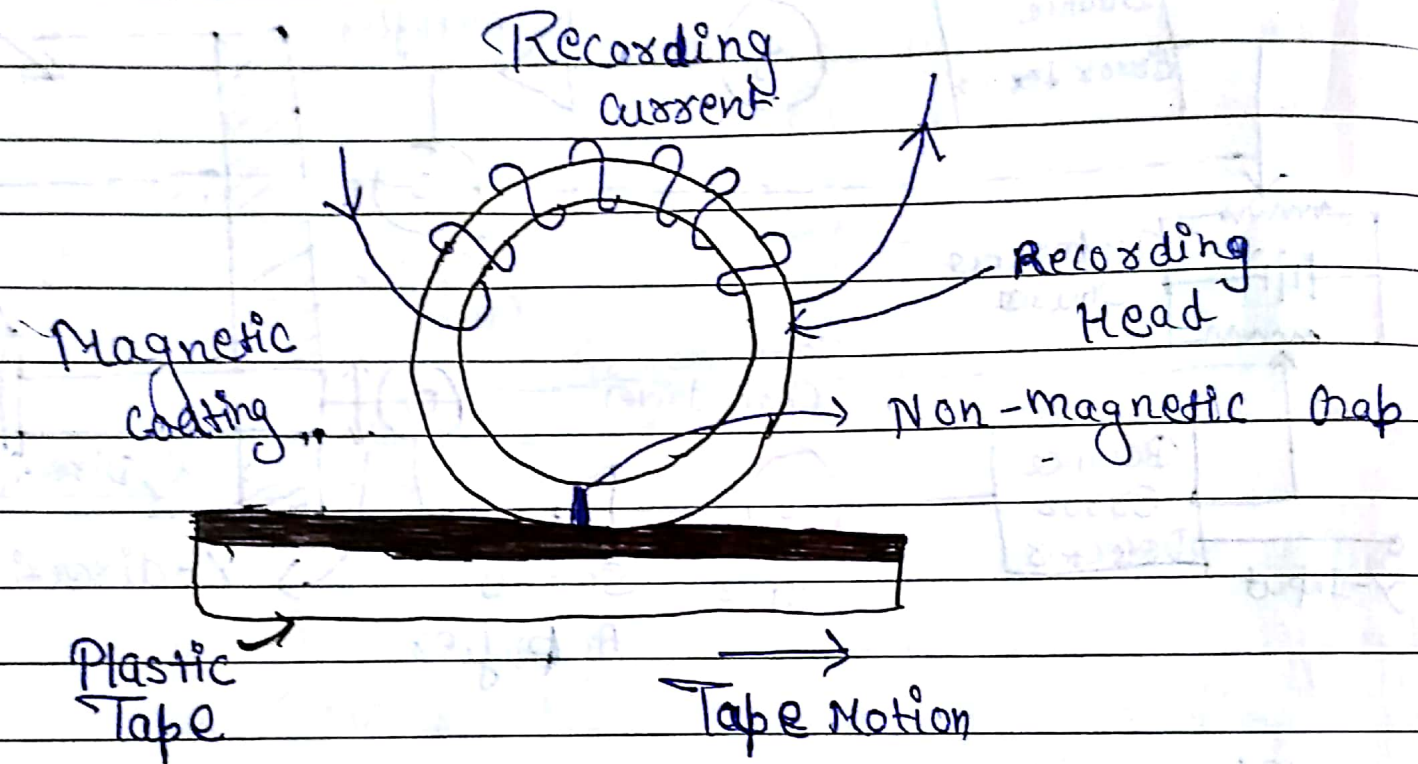 Recording
current
Recording
Head
Magnetic
coating
Non-magnetic Gap
Plastic
Tape
Tape Motion